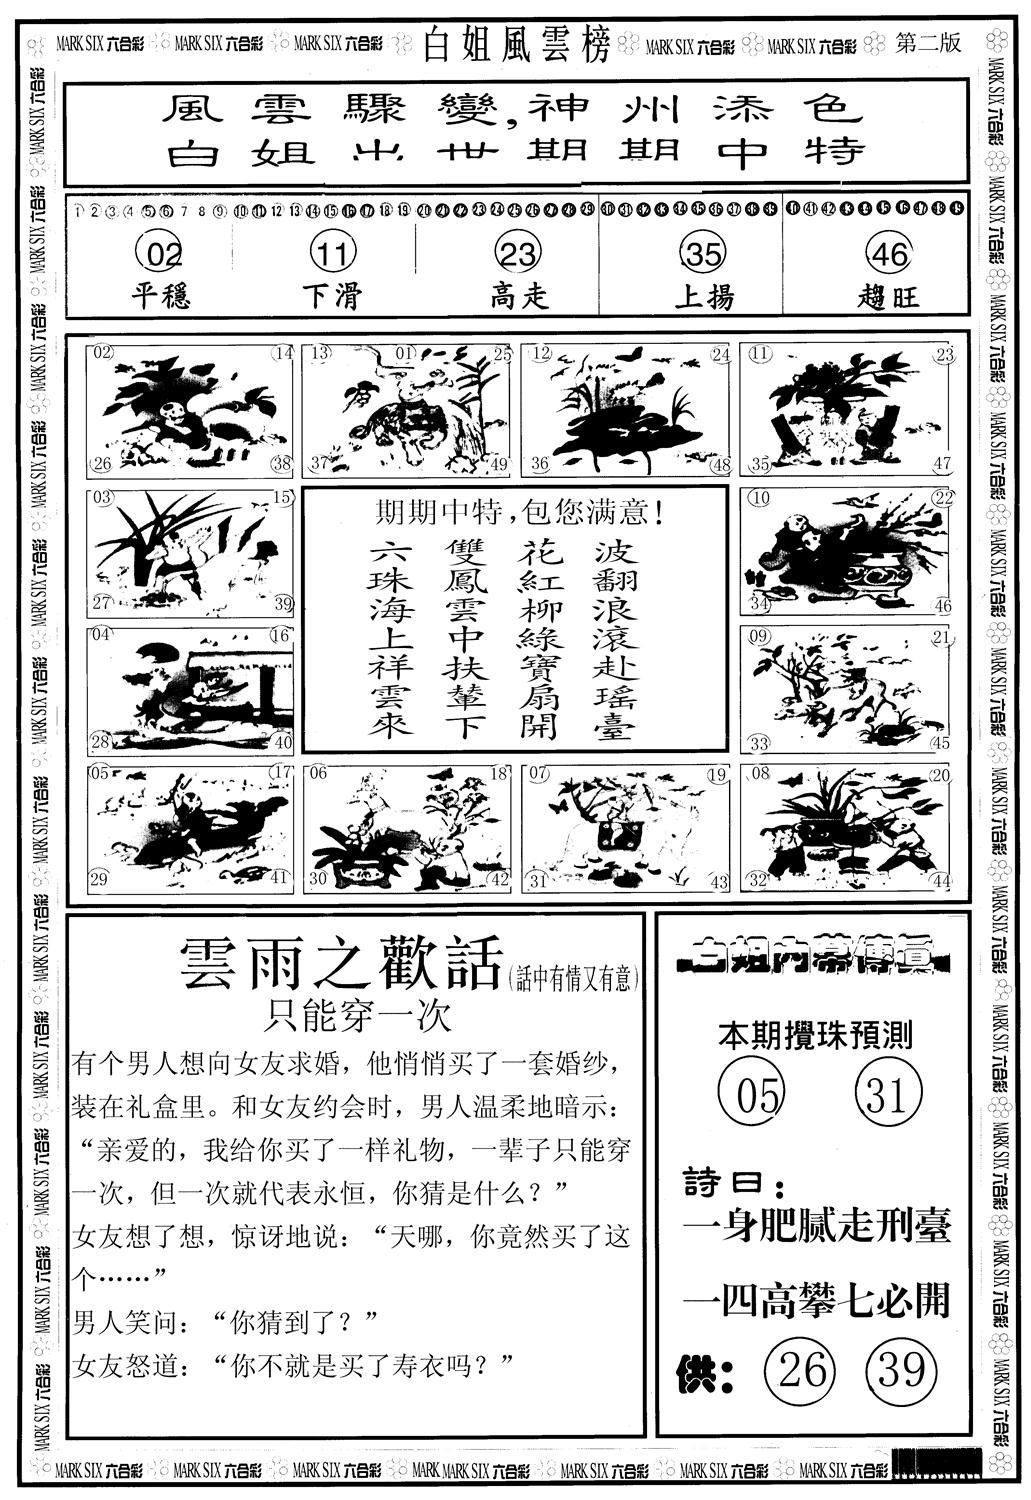 MARK SIX 六合彩 MARK SIX 六合彩 MARK SIX 六合彩 白姐風雲榜 MARK SIX 六合彩 MARK SIX 六合彩 第二版
風雲驟變,神州添色
白姐出世期期中特
1 2 3 4 5 6 7 8 9 10 11 12 13 14 15 16 17 18 19 20 21 22 23 24 25 26 27 28 29 30 31 32 33 34 35 36 37 38 39 40 41 42 43 44 45 46 47 48 49
02 11 23 35 46
平穩 下滑 高走 上揚 趨旺
02 14 13 01 25 12 24 11 23
26 38 37 49 36 48 35 47
03 15
27 39
04 16
28 40
期期中特,包您满意!
六珠海上祥雲來
雙鳳雲中扶輦下
花紅柳綠寶扇開
波翻浪滾赴瑶臺
10 22
34 46
09 21
33 45
05 17 06 18 07 19 08 20
29 41 30 42 31 43 32 44
雲雨之歡話(話中有情又有意)
只能穿一次
有个男人想向女友求婚，他悄悄买了一套婚纱，
装在礼盒里。和女友约会时，男人温柔地暗示：
“亲爱的，我给你买了一样礼物，一辈子只能穿
一次，但一次就代表永恒，你猜是什么？”
女友想了想，惊讶地说：“天哪，你竟然买了这
个……”
男人笑问：“你猜到了？”
女友怒道：“你不就是买了寿衣吗？”
白姐内幕傳真
本期攪珠預測
05 31
詩曰：
一身肥腻走刑臺
一四高攀七必開
供： 26 39
MARK SIX 六合彩 MARK SIX 六合彩 MARK SIX 六合彩 MARK MARK SIX 六合彩 MARK SIX 六合彩 MARK SIX 六合彩 MARK SIX 六合彩